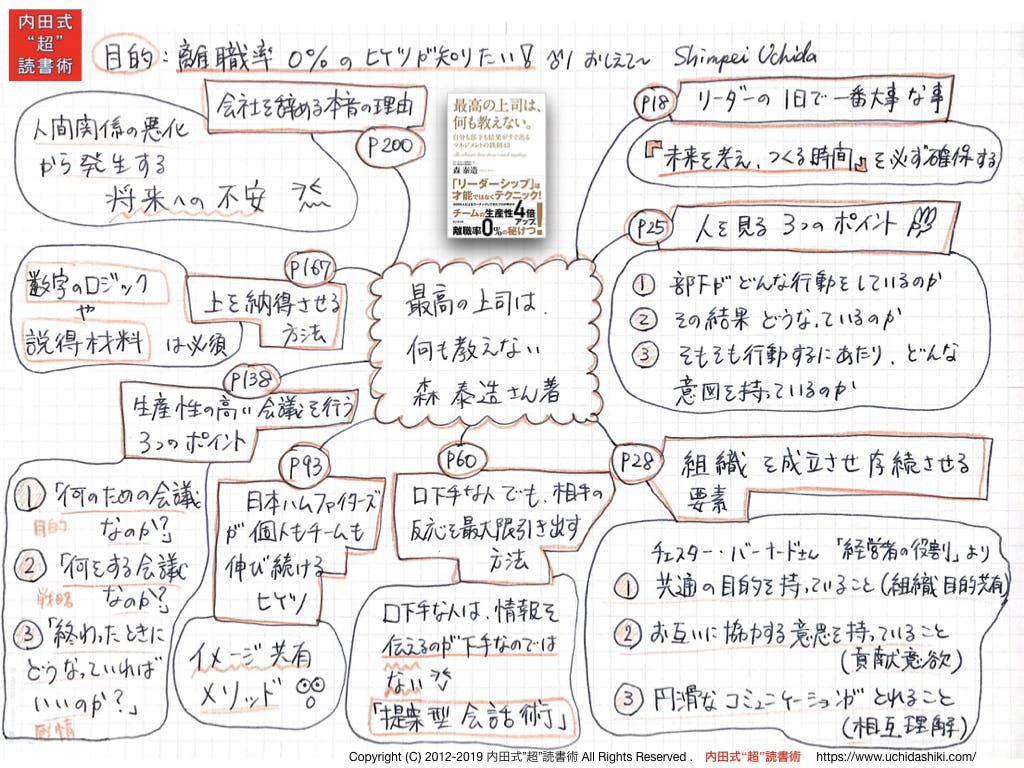 内田式
“超”
読書術
目的：離職率 0%のヒケツが知りたい！ おしえて〜 Shimpei Uchida
会社を辞める本音の理由
P200
人間関係の悪化
から発生する
将来への不安
最高の上司は、
何も教えない。
自分も部下も結果がすぐ出る
マネジメントの鉄則43
森 泰造
「リーダーシップ」は
才能ではなくテクニック！
チームの生産性4倍アップ、
離職率0%の秘けつ！
P18
リーダーの1日で一番大事な事
『未来を考え、つくる時間』を必ず確保する
P25
人を見る3つのポイント
① 部下がどんな行動をしているのか
② その結果どうなっているのか
③ そもそも行動するにあたり、どんな
意図を持っているのか
P167
上を納得させる
方法
数字のロジック
や
説得材料 は必須
最高の上司は、
何も教えない
森 泰造さん著
P138
生産性の高い会議を行う
3つのポイント
① 「何のための会議
目的 なのか？」
② 「何をする会議
戦略 なのか？」
③ 「終わったときに
どうなっていれば
いいのか？」
感情
P93
日本ハムファイターズ
が個人もチームも
伸び続ける
ヒケツ
イメージ共有
メソッド
P60
口下手な人でも、相手の
反応を最大限引き出す
方法
口下手な人は、情報を
伝えるのが下手なのでは
ない
「提案型会話術」
P28
組織を成立させ存続させる
要素
チェスター・バーナードさん「経営者の役割」より
① 共通の目的を持っていること(組織目的共有)
② お互いに協力する意思を持っていること
(貢献意欲)
③ 円滑なコミュニケーションがとれること
(相互理解)
Copyright (C) 2012-2019 内田式”超”読書術 All Rights Reserved . 内田式“超”読書術 https://www.uchidashiki.com/